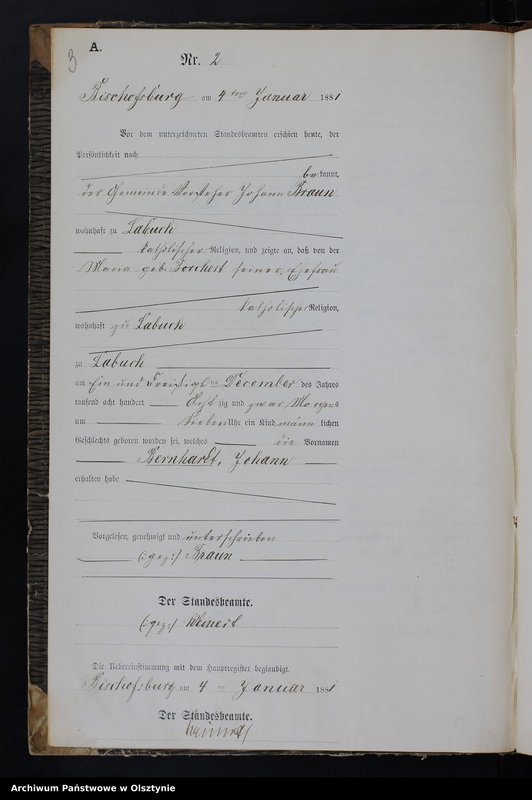 3
A.
Nr. 2
Bischofsburg am 4ten Januar 1881
Vor dem unterzeichneten Standesbeamten erschien heute, der
Persönlichkeit nach
be kannt,
der Gemeinde Vorsteher Johann Braun
wohnhaft zu Labuch
katholischer Religion, und zeigte an, daß von der
Maria geb. Borchert seiner Ehefrau
katholischer Religion,
wohnhaft zu Labuch
zu Labuch
am Ein und Dreißigsten December des Jahres
tausend acht hundert Acht zig und zwar Morgens
um Sieben Uhr ein Kind männ lichen
Geschlechts geboren worden sei, welches die Vornamen
Bernhardt, Johann
erhalten habe
Vorgelesen, genehmigt und unterschrieben
(:gez:) Braun
Der Standesbeamte.
(:gez:) Weinert
Die Uebereinstimmung mit dem Hauptregister beglaubigt.
Bischofsburg am 4 ten Januar 1881
Der Standesbeamte.
Weinert
Archiwum Państwowe w Olsztynie